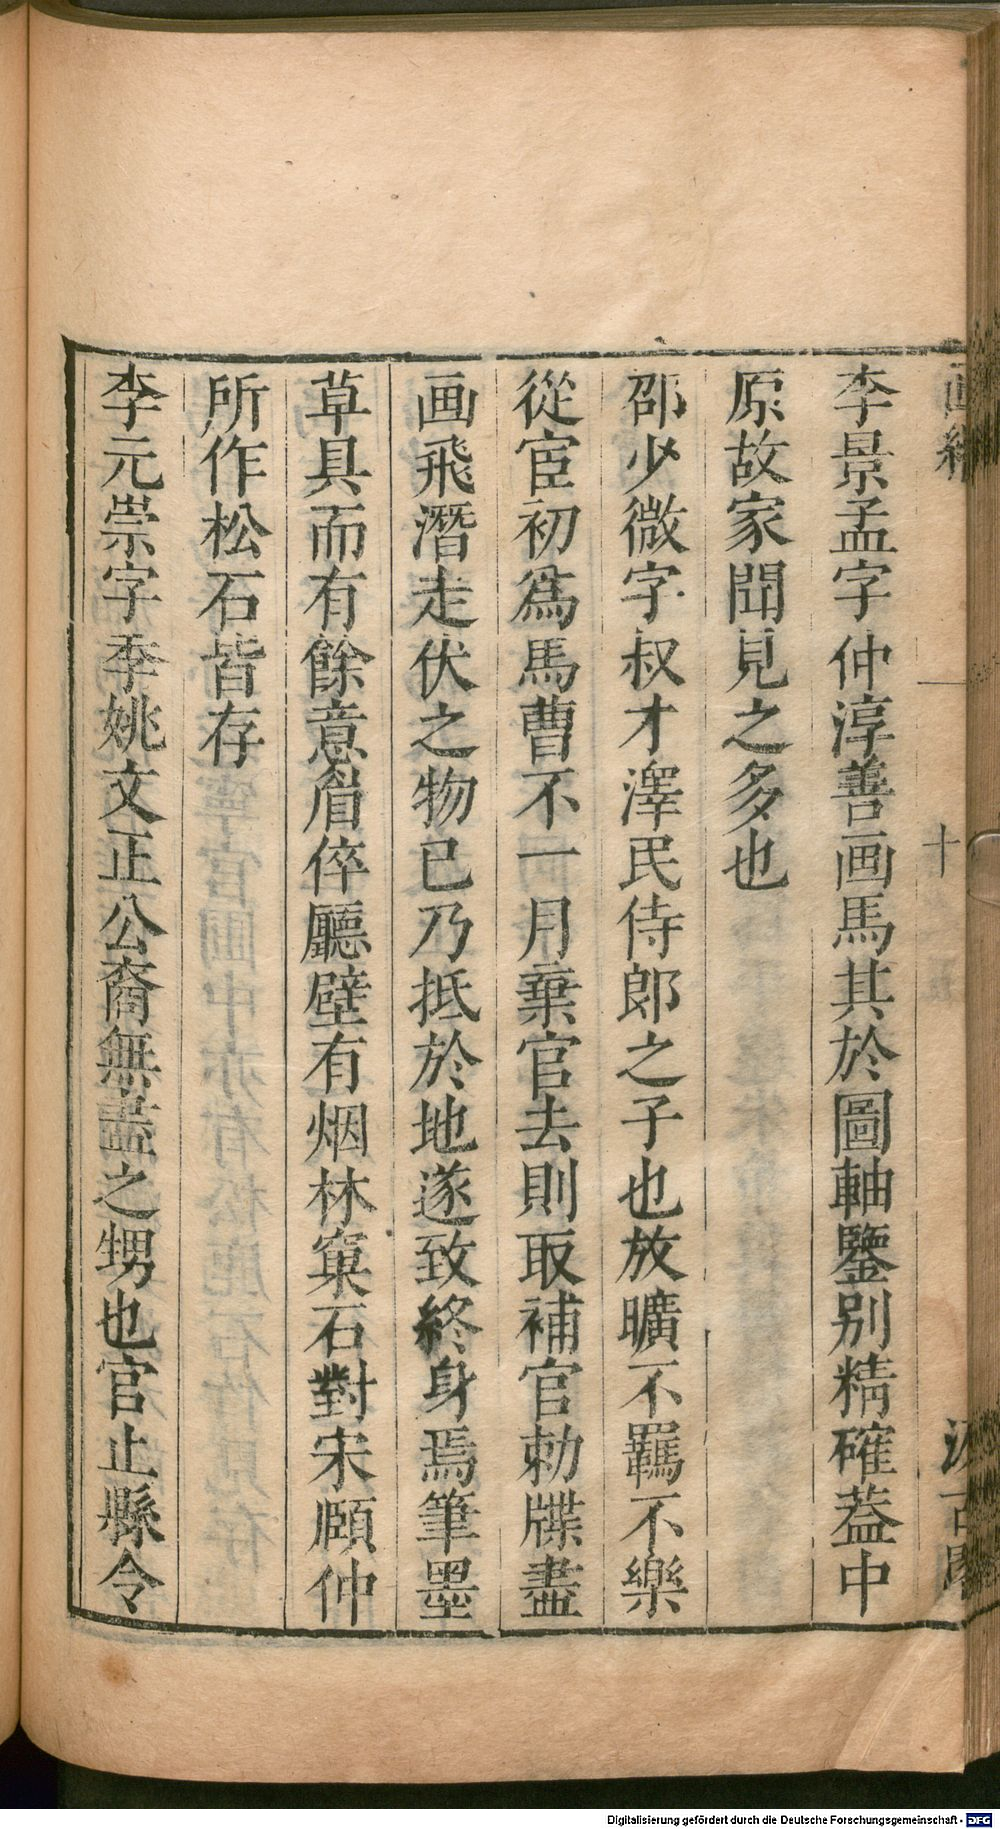 李景孟字仲淳善画馬其於圖軸鑒别精確葢中
原故家聞見之多也
邵少微字叔才澤民侍郎之子也放曠不羈不樂
從宦初爲馬曹不一月棄官去則取補官勅牒盡
画飛潛走伏之物已乃抵於地遂致終身焉筆墨
草具而有餘意眉倅廳壁有烟林窠石對宋頤仲
所作松石皆存
李元崇字季姚文正公裔無盡之甥也官止縣令
十
Digitalisierung gefördert durch die Deutsche Forschungsgemeinschaft - DFG